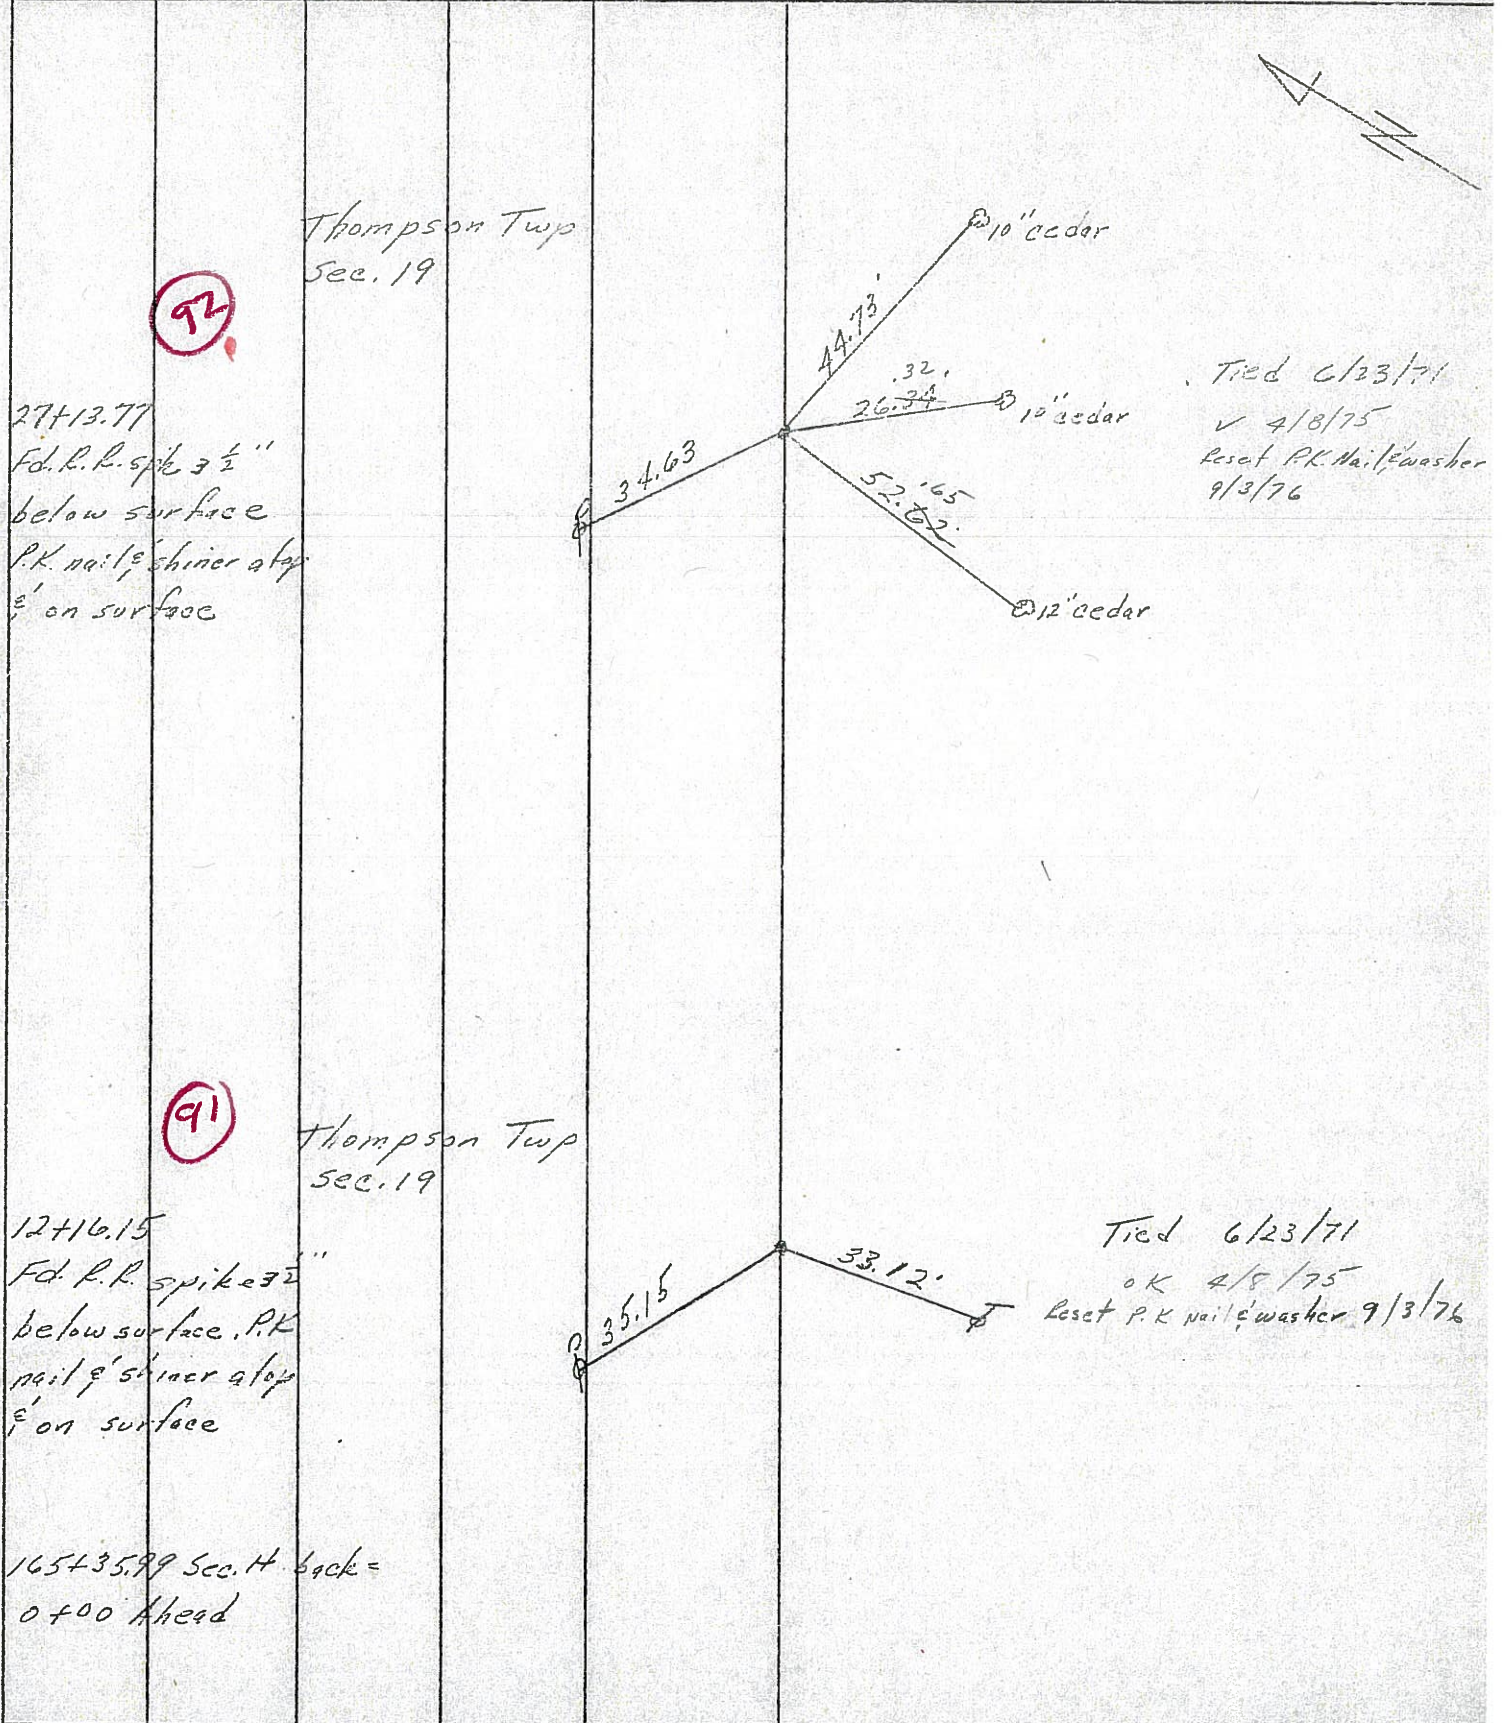 Thompson Twp
Sec. 19
92
27+13.77
Fd. R.R. spk 3 1/2"
below surface
P.K. nail & shiner atop
& on surface
10" cedar
44.73'
.32
26.34
10" cedar
34.63
.65
52.62
12" cedar
Tied 6/23/71
✓ 4/8/75
Reset P.K. Nail & washer
9/3/76
91
Thompson Twp
Sec. 19
12+16.15
Fd. R.R. spike 3 1/2"
below surface, P.K
nail & shiner atop
& on surface
35.15
33.12'
Tied 6/23/71
OK 4/8/75
Reset P.K Nail & washer 9/3/76
165+35.99 Sec. H back =
0+00 Ahead